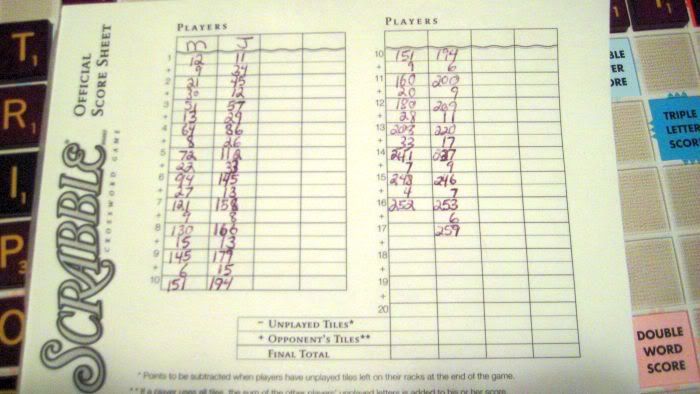 SCRABBLE
CROSSWORD GAME
OFFICIAL
SCORE SHEET
PLAYERS
M J
1 12 11
+ 9 34
2 21 45
+ 30 12
3 51 57
+ 13 29
4 64 86
+ 8 26
5 72 112
+ 22 33
6 94 145
+ 27 13
7 121 158
+ 9 8
8 130 166
+ 15 13
9 145 179
+ 6 15
10 151 194
PLAYERS
10 151 194
+ 9 6
11 160 200
+ 20 9
12 180 209
+ 28 11
13 208 220
+ 33 17
14 241 237
+ 7 9
15 248 246
+ 4 7
16 252 253
+ 6
17 259
+
18
+
19
+
20
- UNPLAYED TILES*
+ OPPONENT'S TILES**
FINAL TOTAL
*Points to be subtracted when players have unplayed tiles left on their racks at the end of the game.
**If a player uses all tiles, the sum of the other players' unplayed letters is added to his or her score.
T1
R1
I1
P3
O
TRIPLE
LETTER
SCOR
DOUBLE
WORD
SCORE